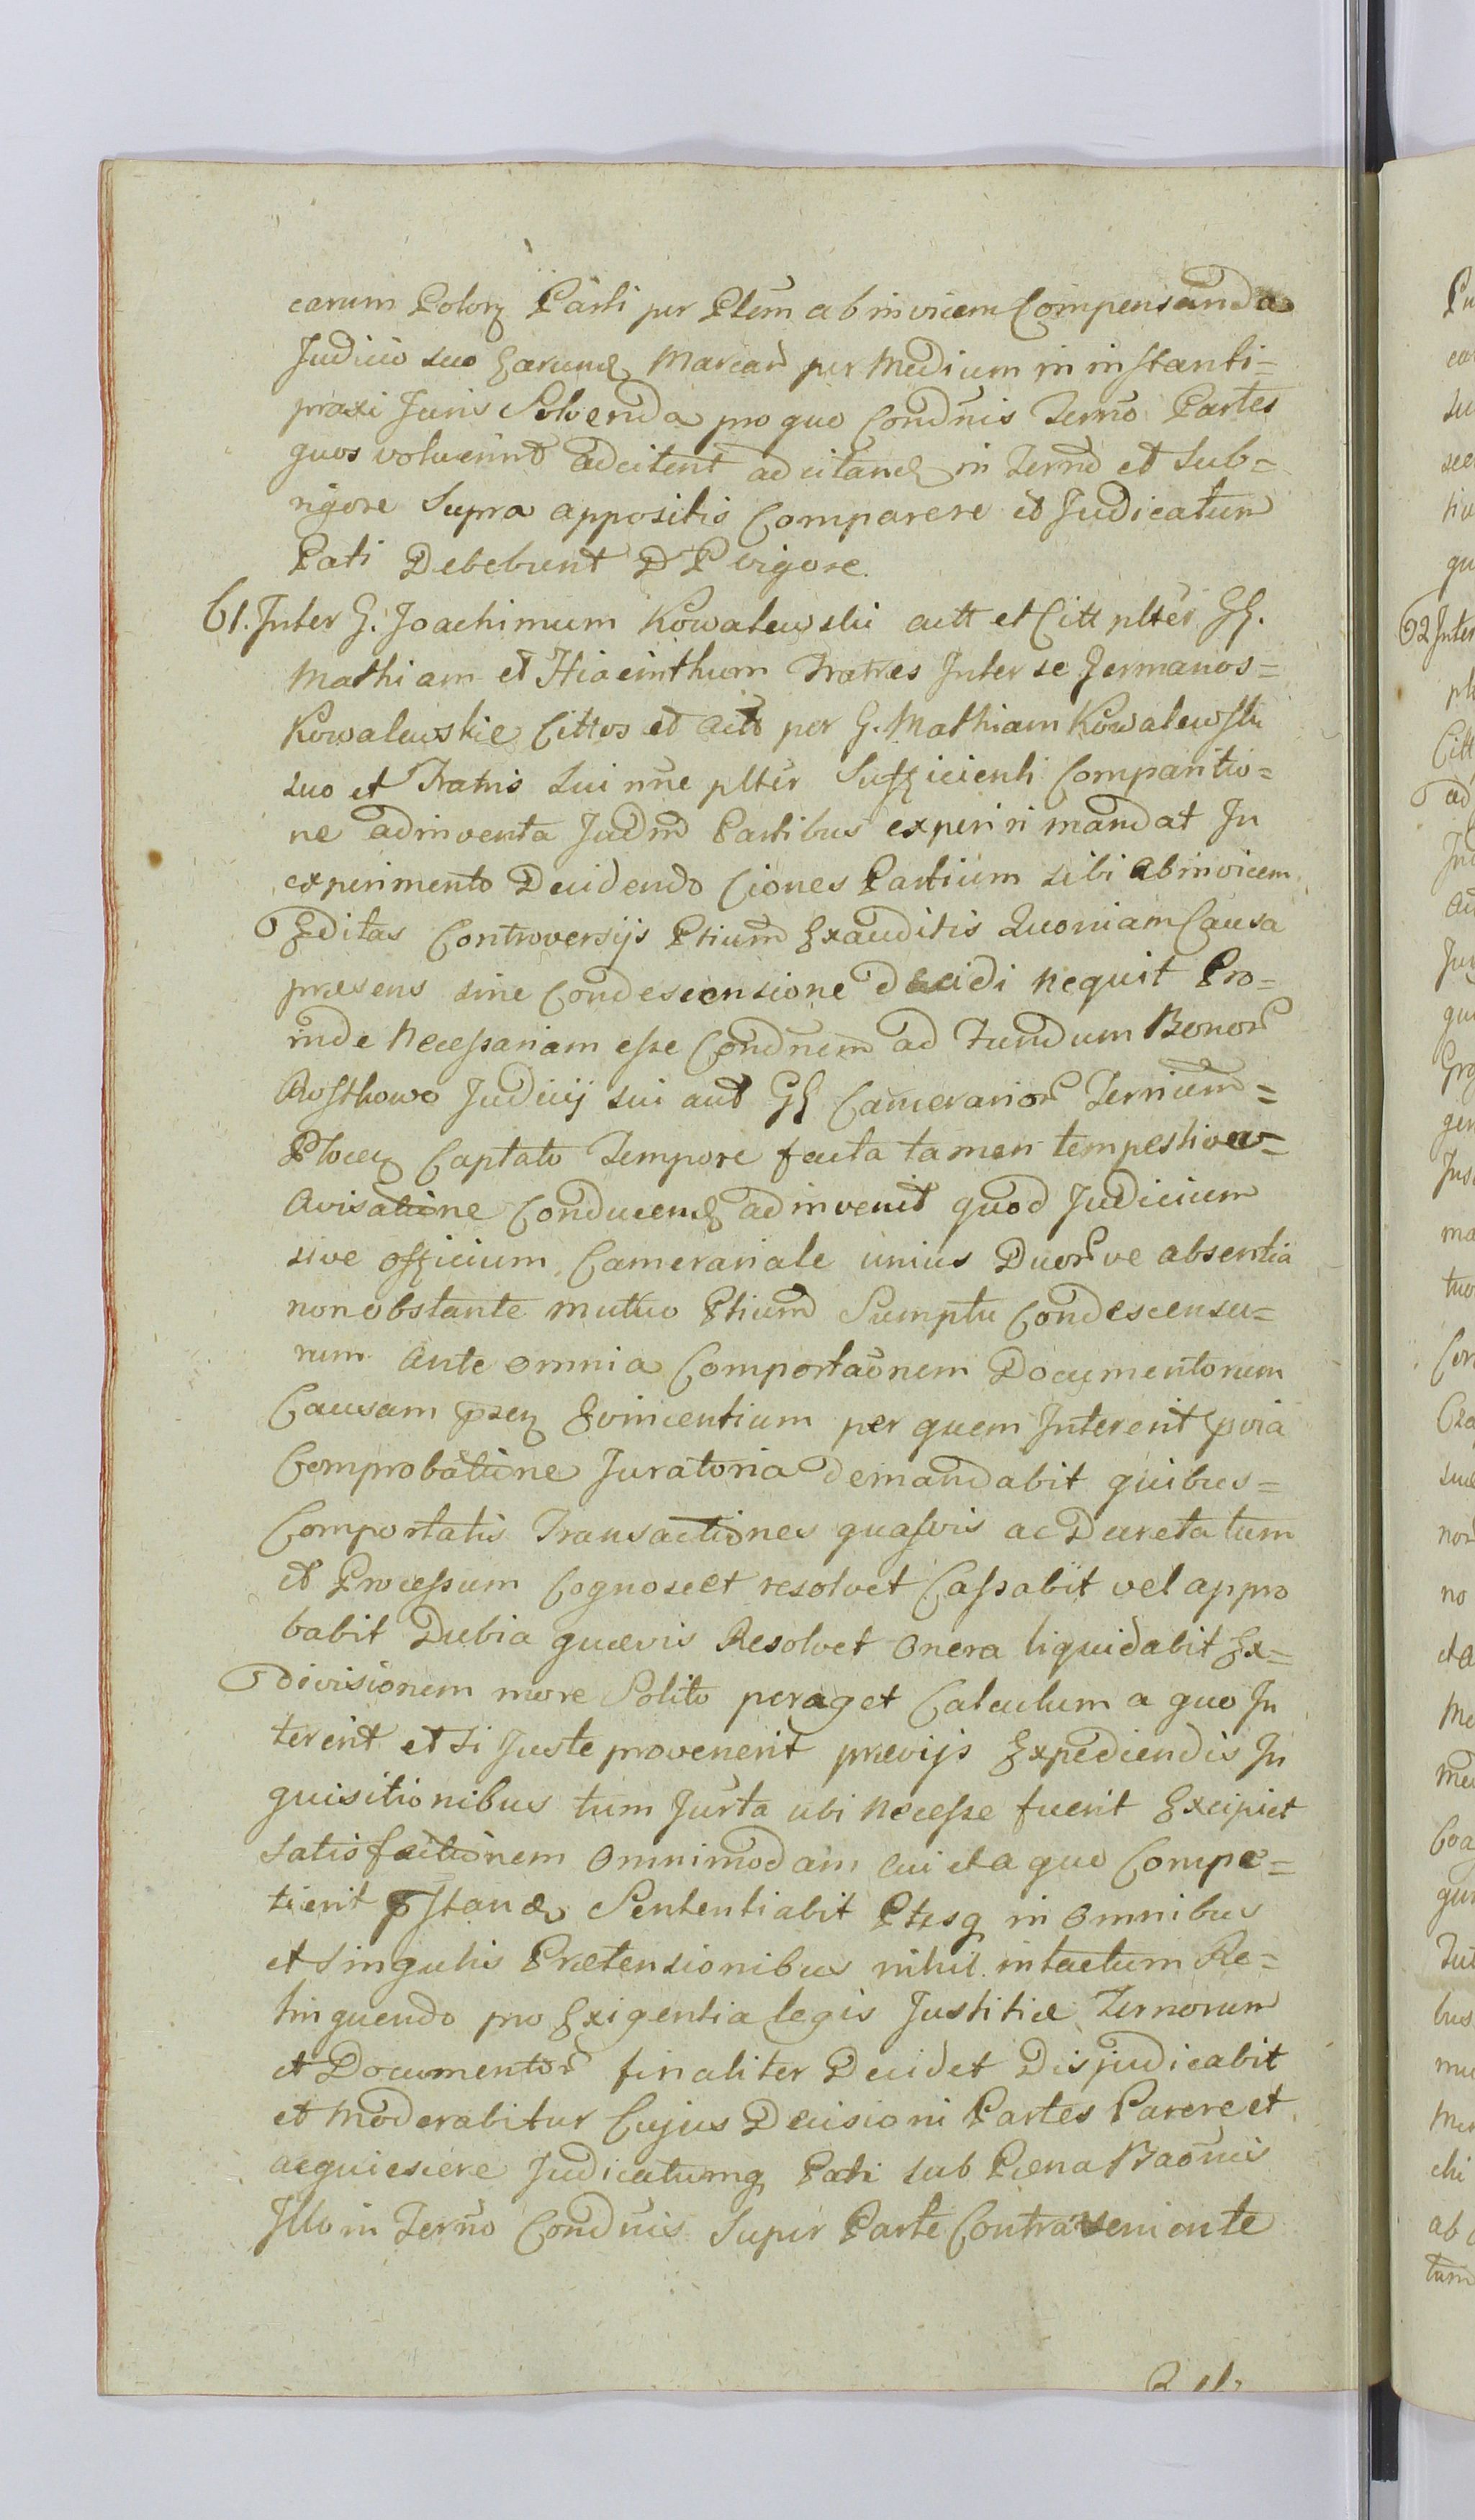 earum Polon Parti per Ptem ab invicem Compensanda
Judicio suo Earund Marcar per Medium in instanti=
praxi Juris Solvenda pro quo Condnis Terno Partes
quos voluerint adcitent ad citand in Terno et Sub=
rigore Supra appositis Comparere et Judicatum
Pati Debebunt D P vigore.
61. Inter G. Joachimum Kowalewski actt et Citt plter GG.
Mathiam et Hiacinthum Fratres Inter se Germanos=
Kowalewskie Cittos et actt per G. Mathiam Kowalewski
suo et Fratris Sui nne plter Sufficienti Comparitio=
ne adinventa Judm Partibus experiri mandat In
experimento Decidendo Ciones Partium sibi ab invicem
Editas Controversijs Ptium Exauditis Quoniam Causa
præsens sine Condescensione decidi nequit Pro=
inde Necessariam esse Condnem ad Fundum Bonor
Rostkowo Judicij sui aut GG Camerarior Terrium=
Plocen Captato Tempore facta tamen tempestiva=
Avisatione Conducend adinvenit quod Judicium
sive officium Camerariale unius Duorve absentia
non obstante mutuo Ptium Sumptu Condescensu=
rum Ante omnia Comportaonem Documentorum
Causam psen Evincentium per quem Intererit pvia
Comprobatione Juratoria demandabit quibus=
Comportatis Transactiones quasvis ac Decreta tum
et Processum Cognoscet resolvet Cassabit vel appro
babit Dubia quævis Resolvet Onera liquidabit Ex=
divisionem more Solito peraget Calculum a quo In
tererit et Si Juste provenerit prævijs Expediendis In
quisitionibus tum Jurta ubi Necesse fuerit Excipiet
satisfactionem Omnimodam cui et a quo Compe=
tierit pstand Sententiabit Ptesq in Omnibus
et Singulis Prætensionibus nihil intactum Re=
linquendo pro Exigentia legis Justitiæ Ternorum
et Documentor finaliter Decidet Disjudicabit
et Moderabitur Cujus Decisioni Partes Parere et
acquiescere Judicatumq Pati sub Pæna Baonis
Illo in Terno Condnis Super Parte Contraveniente